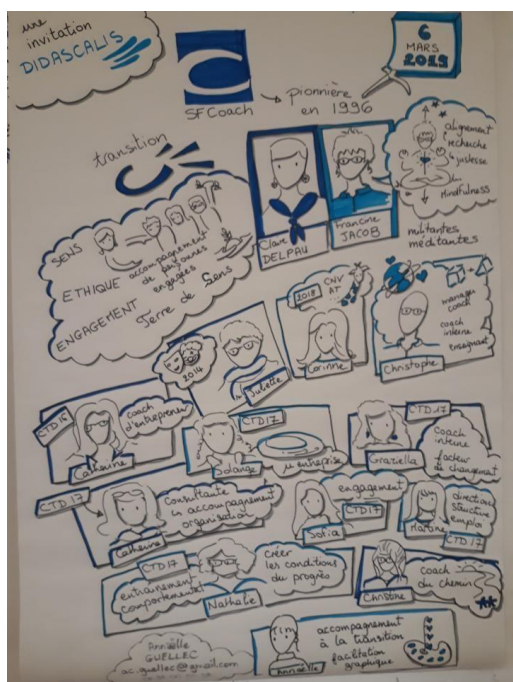 une
invitation
DIDASCALIS
6
MARS
2019
SFCoach → pionnière
en 1996
transition
alignement
recherche
justesse
Mindfulness
Claire
DELPAU
Francine
JACOB
militantes
méditantes
SENS
ETHIQUE
ENGAGEMENT
accompagnement
de personnes
engagées
Terre de Sens
2014
Juliette
2018
CNV
AT
Corinne
manager
coach
coach
interne
enseignant
Christophe
CTD 16
coach
d'entrepreneur
Catherine
CTD 17
Solange
µ entreprise
CTD 17
Graziella
coach
interne
facteur
de changement
CTD 17
Catherine
consultante
en accompagnement
organisation
engagement
CTD 17
direction
structure
emploi
Martine
CTD 17
CTD 17
entrainement
comportemental
Nathalie
créer
les conditions
du progrès
Christine
coach
du chemin
Annaëlle
GUELLEC
ac.guellec@gmail.com
Annaëlle
accompagnement
à la transition
facilitation
graphique